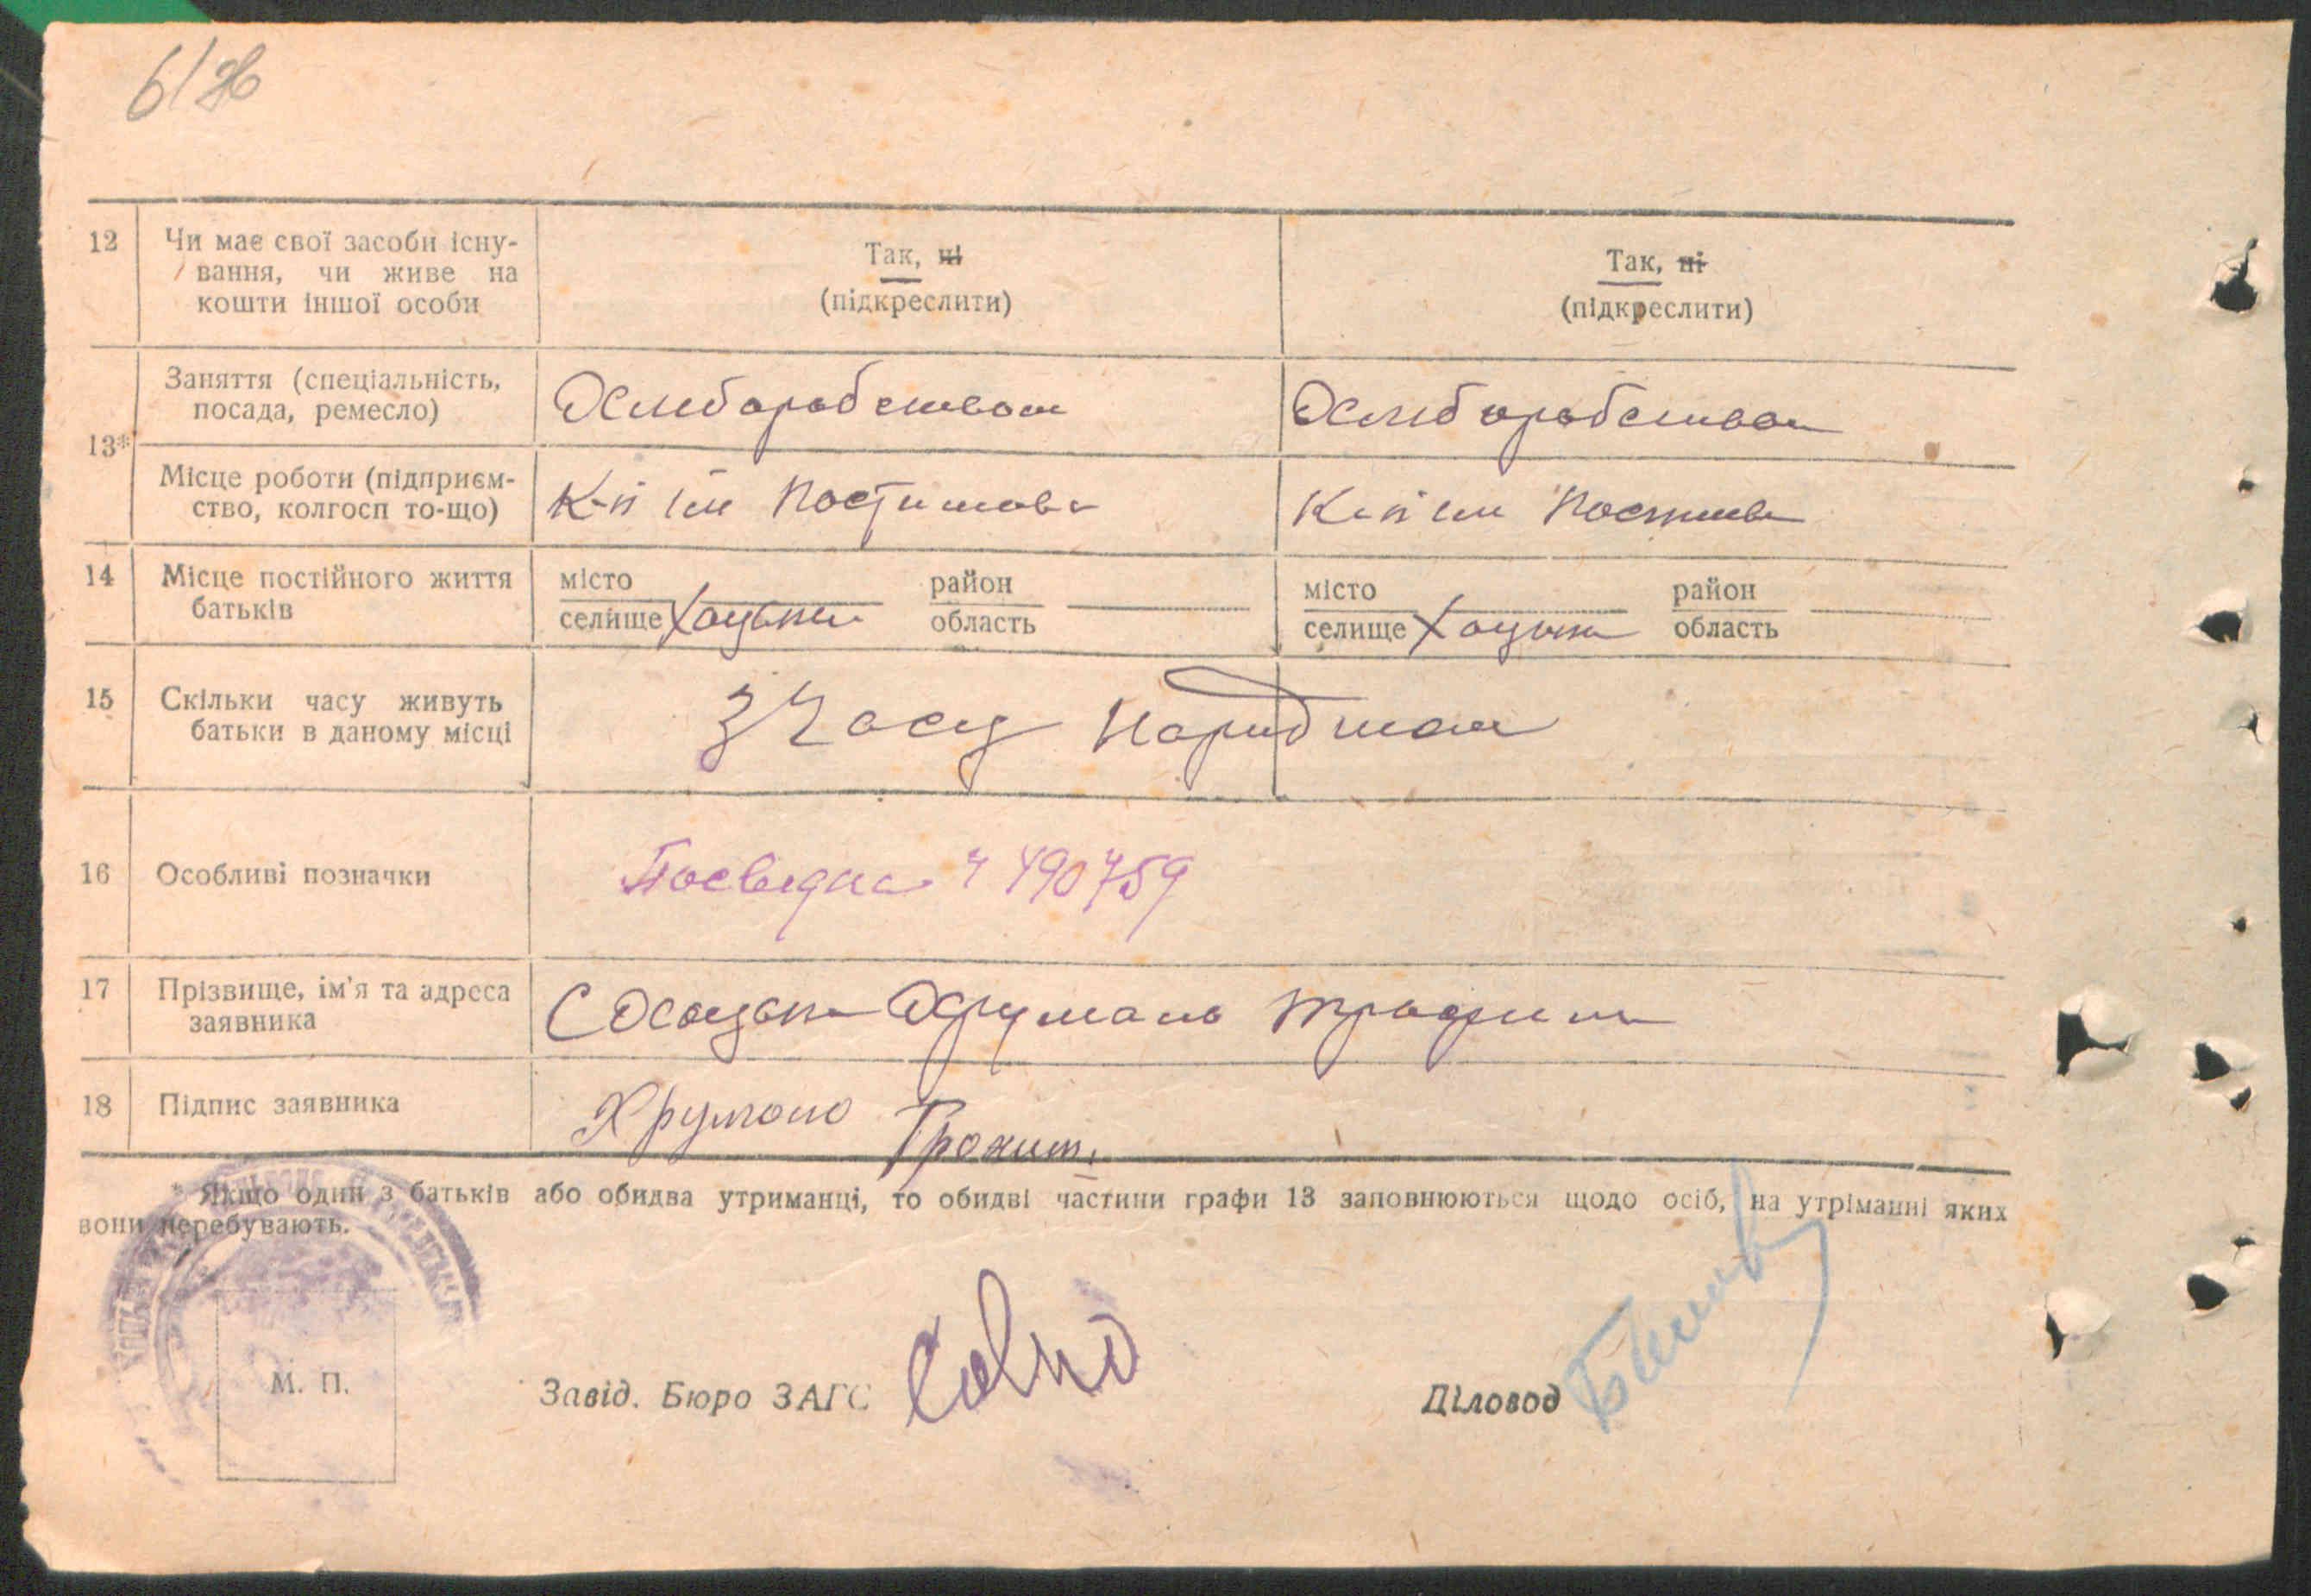 12 Чи має свої засоби існу-
вання, чи живе на
кошти іншої особи
Так, ні
(підкреслити)
Так, ні
(підкреслити)
13*
Заняття (спеціальність,
посада, ремесло)
Хліборобством
Хліборобством
Місце роботи (підприєм-
ство, колгосп то-що)
К-п ім Постишева
К-п ім Постишева
14 Місце постійного життя
батьків
місто
селище Хацьки
район
область
місто
селище Хацьки
район
область
15 Скільки часу живуть
батьки в даному місці
З часу народжен
16 Особливі позначки
Посведка ч 490759
17 Прізвище, ім'я та адреса
заявника
С Хацьки Хрумало Трохим
18 Підпис заявника
Хрумало Трохим.
* Якщо один з батьків або обидва утриманці, то обидві частини графи 13 заповнюються щодо осіб, на утріманні яких
вони перебувають.
М. П.
Завід. Бюро ЗАГС
Діловод